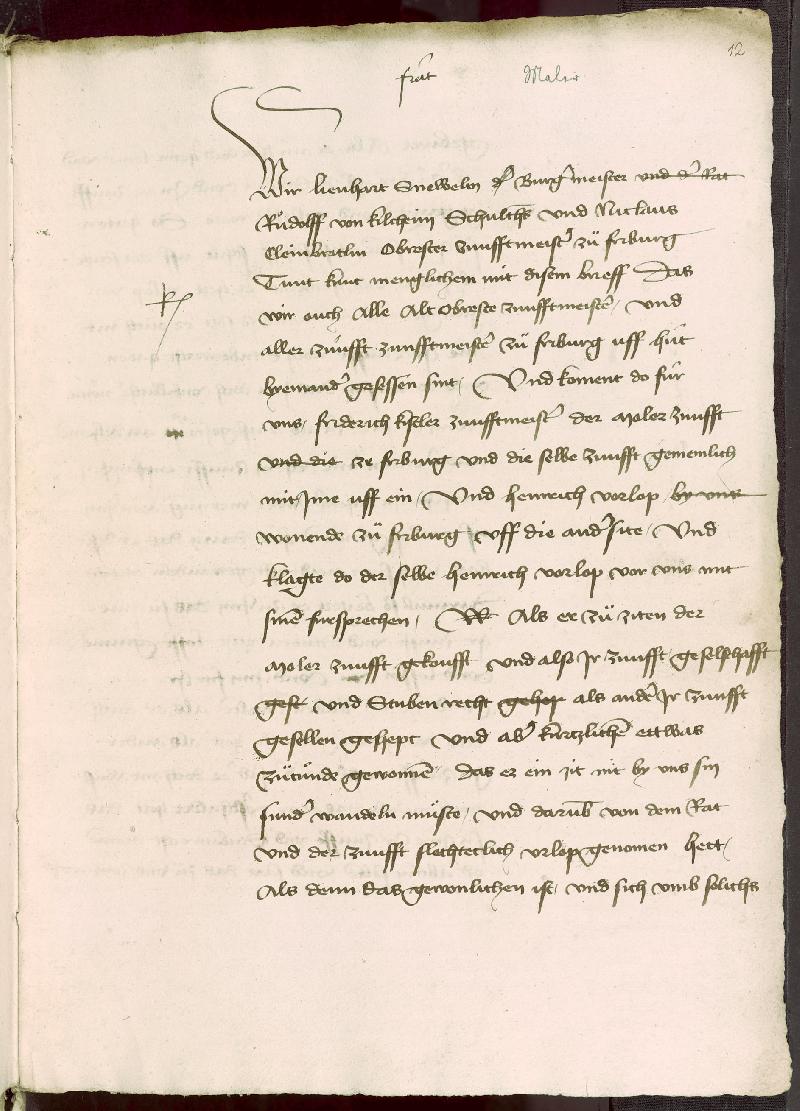 12
frat Maler
Wir lienhart Snewelin Burgermeister und der Rat
Rudolff von kilchein Schulths und Niclaus
Cleinbrotlin Obrester zunfftmeister zü friburg
Tunt kunt menglichem mit disem brieff Das
wir ouch Alle Alt Obreste zunfftmeister und
aller zünfft zunfftmeister zü friburg uff hüt
byeinander gesessen sint, Und koment do für
uns, friderich kisler zunfftmeister der Maler zunfft
und die ze friburg und die selbe zunfft gemeinlich
mit Ime uff ein, Und henrich vorlop by uns
wonende zü friburg uff die ander site, Und
klagte do der selbe heinrich vorlop vor uns mit
sinem fürsprechen, Als er zü ziten der
Maler zunfft gekoufft und also Ir zunfft geselschafft
gest und Stuben recht gehep als ander Ir zunfft
gesellen gehept und aber kurtzlichen ettwas
gewonnen das er ein zit nit by uns sin
sunder wandeln müste, und darumb von dem Rat
und der zunfft slechteclich urlop genomen hett,
Als denn das gewonlichen ist, und sich umb solichs